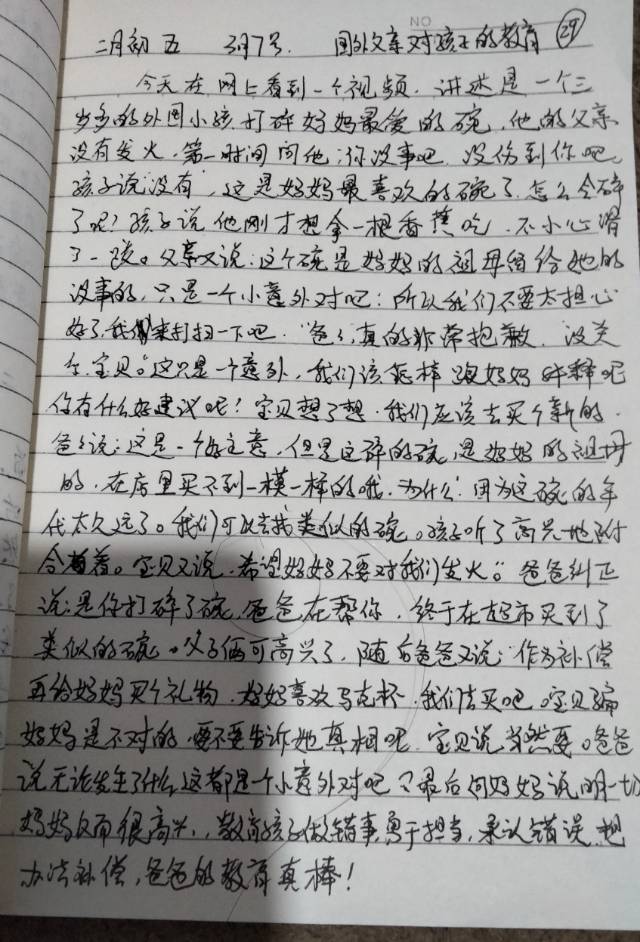 NO
二月初五 3月7号. 国外父亲对孩子的教育 29
今天在网上看到一个视频. 讲述是一个三
岁多的外国小孩打碎妈妈最爱的碗, 他的父亲
没有发火. 第一时间问他: 你没事吧. 没伤到你吧.
孩子说"没有", 这是妈妈最喜欢的碗了. 怎么会碎
了呢? 孩子说他刚才想拿一根香蕉吃. 不小心滑
了一跤. 父亲又说: 这个碗是妈妈的祖母留给她的
没事的, 只是一个小意外对吧: 所以我们不要太担心
好了, 我们来打扫一下吧. "爸爸, 真的非常抱歉. 没关
系宝贝. 这只是一个意外, 我们该怎样跟妈妈解释呢
你有什么好建议呢? 宝贝想了想. 我们应该去买个新的.
爸爸说: 这是一个好主意, 但是这碎的碗, 是妈妈的祖母
的. 在店里买不到一模一样的哦. 为什么. 因为这碗的年
代太久远了. 我们可以去找类似的碗. 孩子听了高兴地附
合着. 宝贝又说. 希望妈妈不要对我们发火. "爸爸纠正
说: 是你打碎了碗, 爸爸在帮你. 终于在超市买到了
类似的碗. 父子俩可高兴了. 随后爸爸又说: 作为补偿
再给妈妈买个礼物. 妈妈喜欢马克杯. 我们去买吧. 宝贝骗
妈妈是不对的, 要不要告诉她真相呢. 宝贝说当然要. 爸爸
说无论发生了什么这都是一个小意外对吧? 最后向妈妈说明一切
妈妈反而很高兴, 教育孩子做错事, 勇于担当, 承认错误, 想
办法补偿, 爸爸的教育真棒!